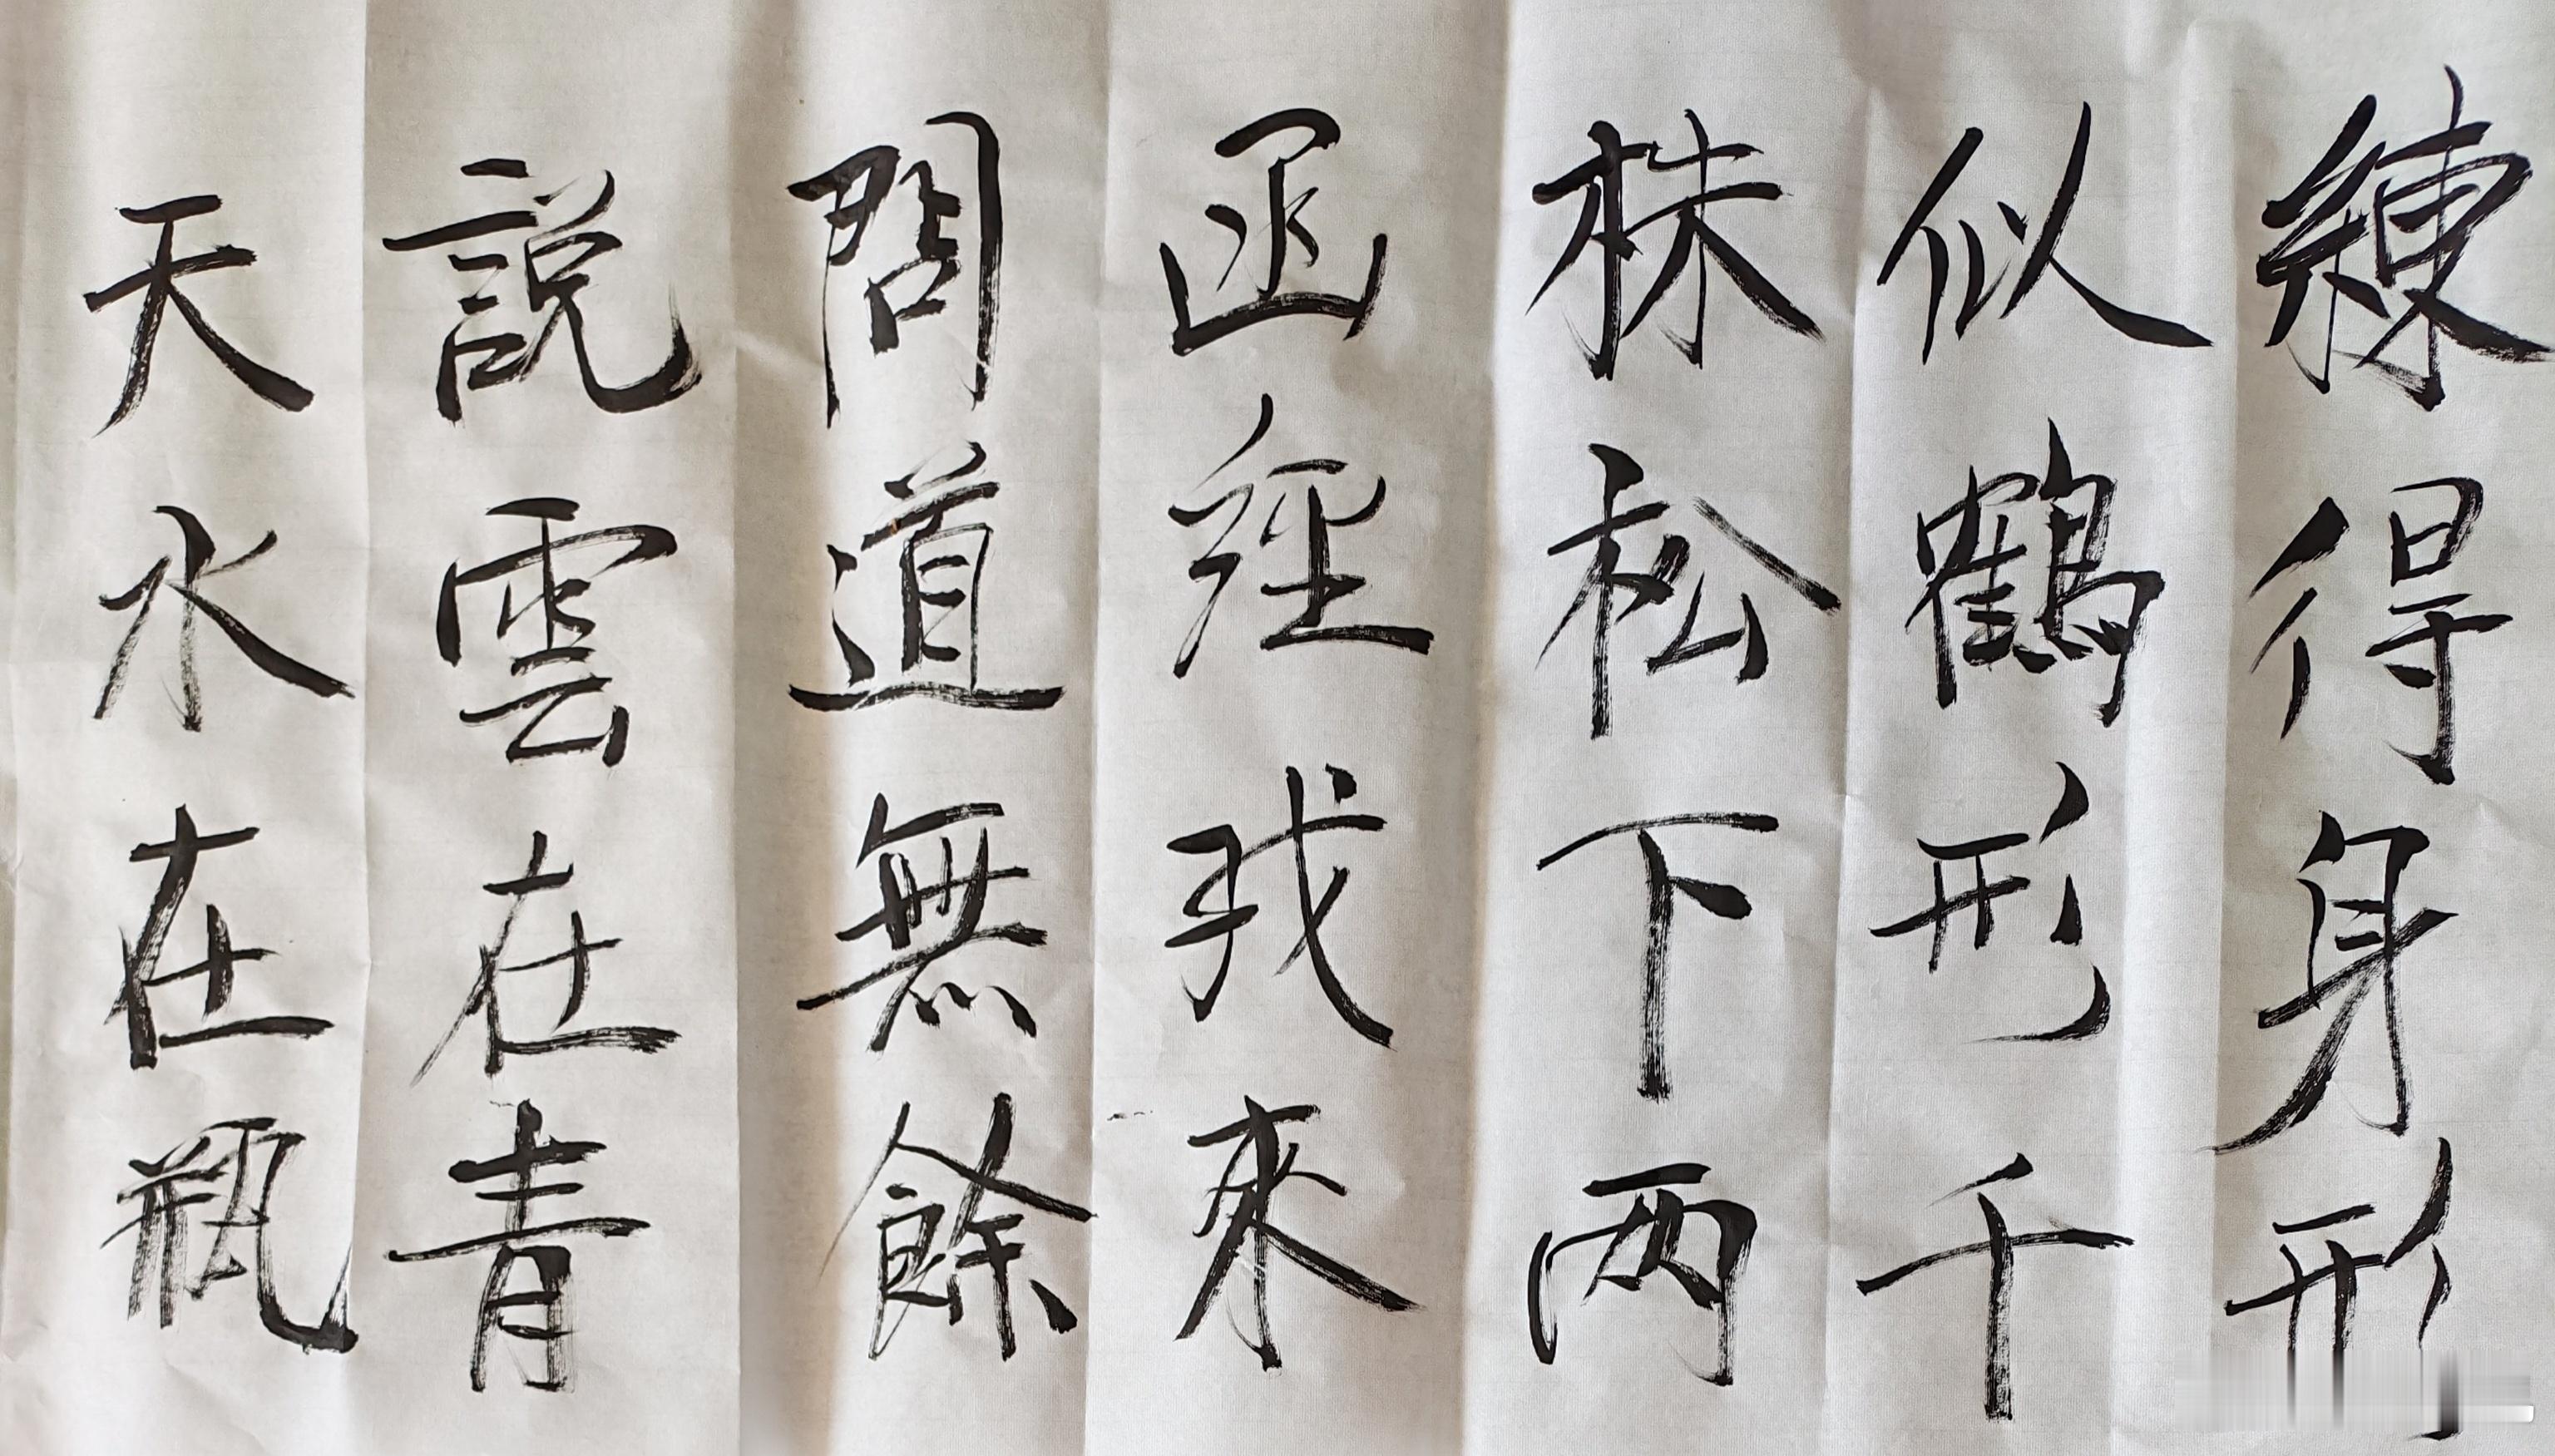 練得身形
似鶴形千
株松下两
函經我來
問道無餘
説雲在青
天水在瓶